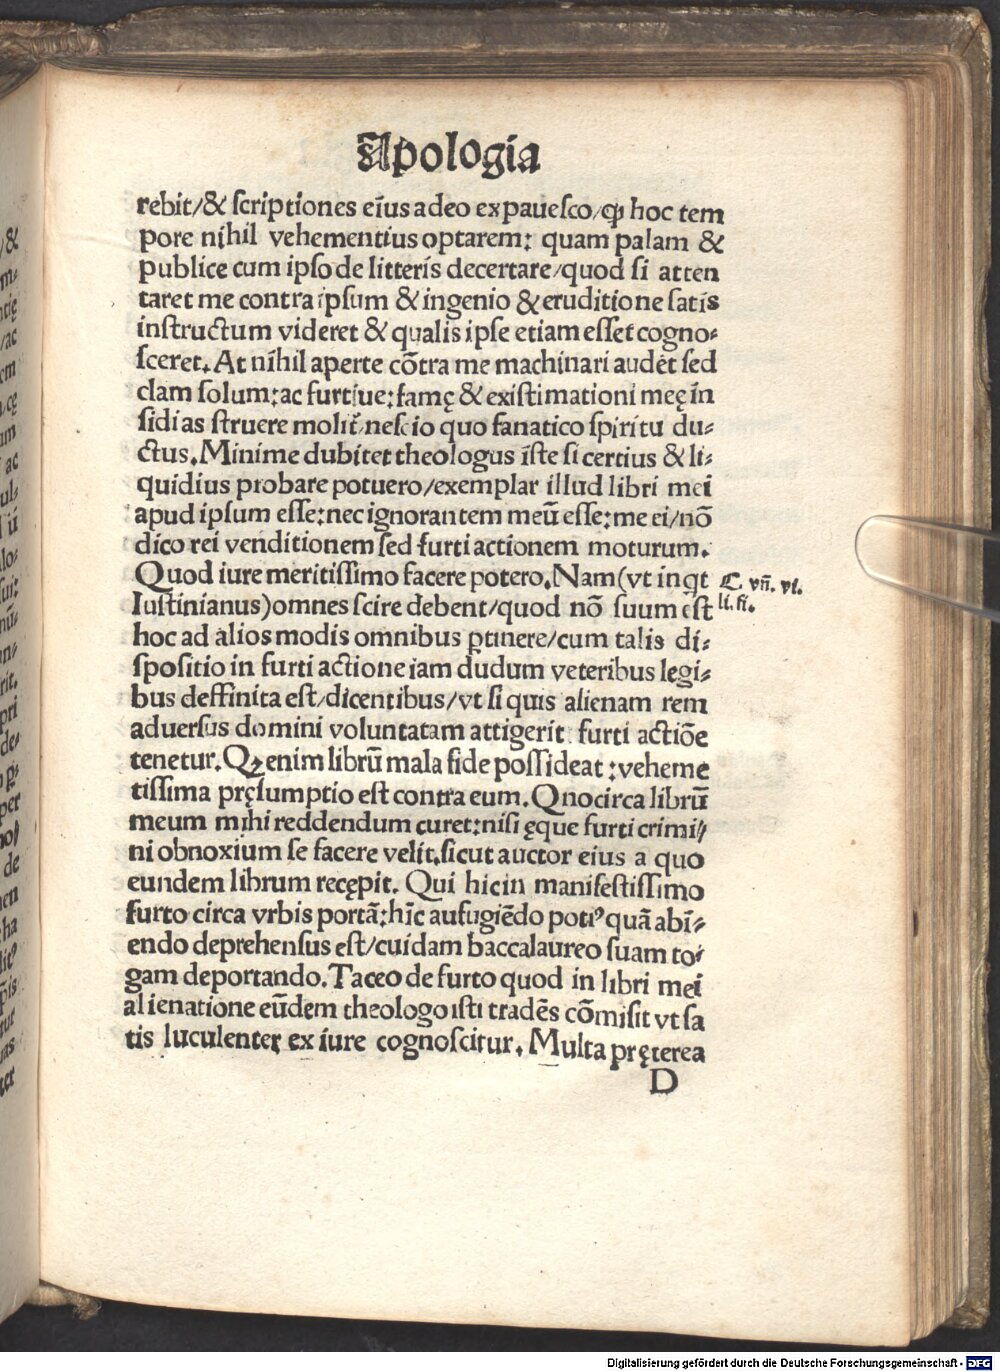 Apologia
rebit/& scriptiones eius adeo expauesco/ꝙ hoc tem
pore nihil vehementius optarem: quam palam &
publice cum ipso de litteris decertare/quod si atten
taret me contra ipsum & ingenio & eruditione satis
instructum videret & qualis ipse etiam esset cogno⸗
sceret. At nihil aperte cōtra me machinari audēt sed
clam solum: ac furtiue: famę & existimationi meę in
sidias struere molit᷑ nescio quo fanatico spiritu du⸗
ctus. Minime dubitet theologus iste si certius & li⸗
quidius probare potuero/exemplar illud libri mei
apud ipsum esse: nec ignorantem meū esse: me ei/nō
dico rei venditionem sed furti actionem moturum.
Quod iure meritissimo facere potero. Nam (vt inqt
C. vii. vi.
Iustinianus) omnes scire debent/quod nō suum est
li. fi.
hoc ad alios modis omnibus ꝑtinere/cum talis di⸗
spositio in furti actione iam dudum veteribus legi⸗
bus deffinita est/dicentibus/vt si quis alienam rem
aduersus domini voluntatam attigerit furti actiōe
tenetur. Qꝫ enim librū mala fide possideat: veheme
tissima pręsumptio est contra eum. Qnocirca librū
meum mihi reddendum curet: nisi ęque furti crimi⸗
ni obnoxium se facere velit. sicut auctor eius a quo
eundem librum recępit. Qui hic in manifestissimo
furto circa vrbis portā: hīc aufugiēdo potiꝰ quā abī⸗
endo deprehensus est/cuidam baccalaureo suam to⸗
gam deportando. Taceo de furto quod in libri mei
alienatione eūdem theologo isti tradēs cōmisit vt sa
tis luculenter ex iure cognoscitur. Multa pręterea
D
/&
ac
um
ac
de
per
Digitalisierung gefördert durch die Deutsche Forschungsgemeinschaft - DFG